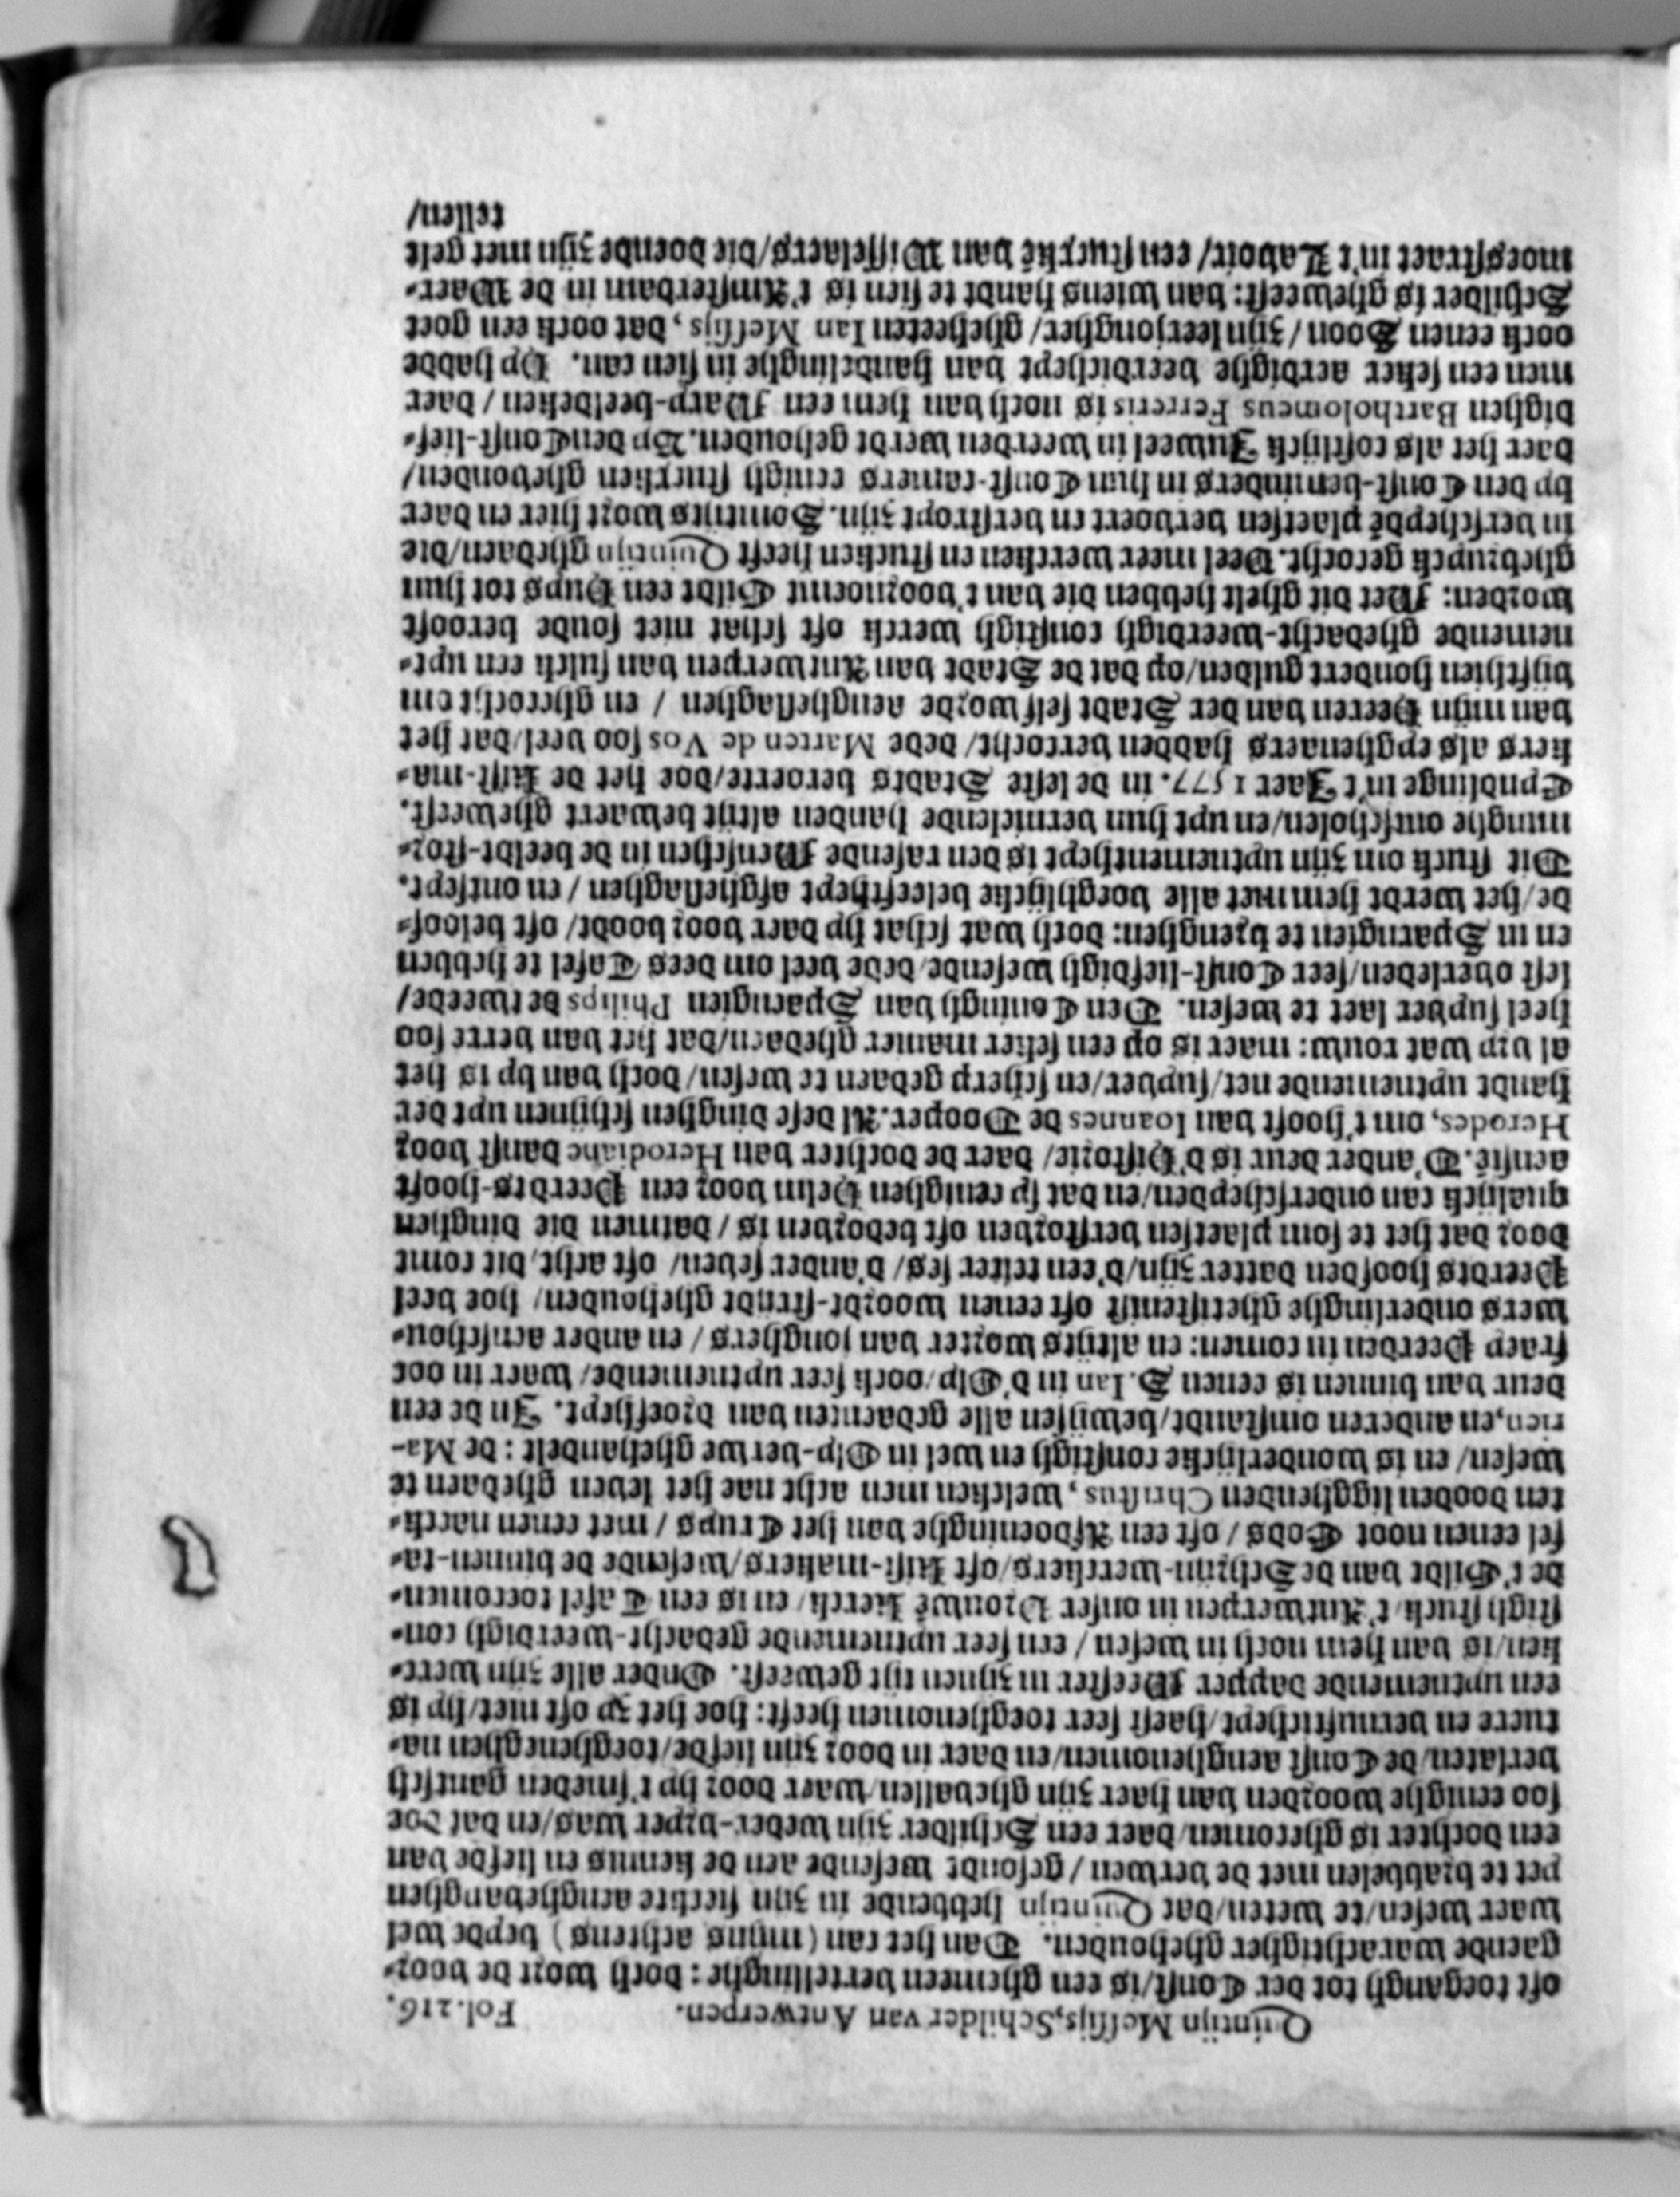 Quintijn Messijs, Schilder van Antwerpen. Fol. 216.
oft toegangh tot der Const/is een ghemeen vertellinghe: doch wort de voor-
gaende warachtigher ghehouden. Dan het can (mijns achtens) beyde wel
waer wesen/te weten/dat Quintijn hebbende in zijn sieckte aenghevanghen
pet te brabbelen met de verwen/gesondt wesende aen de kennis en liefde van
een dochter is ghecomen/daer een Schilder zijn weder-vryer was/en dat doe
soo eenighe woorden van haer zijn ghevallen/waer door hy t'smeden gantsch
verlaten/de Const aenghenomen/en daer in door zijn liefde/toegheneghen na-
tuere en vernuftichept/haest seer toeghenomen heeft: hoe het zy oft niet/hy is
een uptnemende dapper Meester in zijnen tijt geweest. Onder alle zijn werc-
ken/is van hem noch in wesen/een seer uptnemende gedacht-weerdigh con-
stigh stuck/t'Antwerpen in onser Vrouwē kierck/en is een Tafel toecomen-
de t'Gildt van de Schrijn-werckers/oft kist-makers/wesende de binnen-ta-
fel eenen noot Gods/oft een Afdoeninghe van het Cruys/met eenen naeck-
ten doodenligghenden Christus, welcken men acht nae het leven ghedaen te
wesen/en is wonderlijcke constigh en wel in Oly-verwe ghehandelt: de Ma-
rien, en anderen omstandt/bewijsen alle gedaenten van droefhept. In de een
deur van binnen is eenen S. Ian in d'Oly/oock seer uptnemende/waer in oor
fraey Peerden in comen: en altijts worter van jonghers/en ander aenschou-
wers onderlinghe ghetwistenist oft eenen woordt-strijdt ghehouden/hoe veel
Peerdts hoofden datter zijn/d'een telter ses/d'ander seven/oft acht/dit comt
door dat het te som plaetsen verstorven oft bedorven is/datmen die dinghen
qualijck can onderscheyden/en dat sy eenighen Helm voor een Peerdts-hooft
aensiē. D'ander deur is d'Historie/daer de dochter van Herodiane danst voor
Herodes, om t'hooft van Ioannes de Dooper. Al dese dinghen schijnen uyt der
handt uptnemende net/suyver/en scherp gedaen te wesen/doch van by is het
al vry wat rouw: maer is op een seker manier ghedaen/dat het van verre soo
heel suyver laet te wesen. Den Coningh van Spaengien Philips de tweede/
lest overleden/seer Const-liefdigh wesende/dede veel om dees Tafel te hebben
en in Spaengien te brenghen: doch wat schat hy daer voor boodt/oft beloof-
de/het werdt hem met alle voeghlijcke beleefthept afgheslaghen/en ontseyt.
Dit stuck om zijn uptnementhept is den rasende Menschen in de beeldt-stor-
minghe ontscholen/en uyt hun vernielende handen altijt bewaert gheweest.
Eyndlinge in't Jaer 1577. in de leste Stadts beroerte/doe het de kist-ma-
kers als eyghenaers hadden vercocht/dede Marten de Vos soo veel/dat het
van mijn Heeren van der Stadt self worde aengheslaghen/en ghecocht om
vijfthien hondert gulden/op dat de Stadt van Antwerpen van sulck een upt-
nemende ghedacht-weerdigh constigh werck oft schat niet soude berooft
worden: Met dit ghelt hebben die van t'voornoemt Gildt een Huys tot hun
ghebruyck gecocht. Veel meer wercken en stucken heeft Quintijn ghedaen/die
in verscheydē plaetsen vervoert en verstropt zijn. Somtijts wort hier en daer
by den Const-beminders in hun Const-camers eenigh stucxken ghevonden/
daer het als costlijck Juweel in weerden werdt gehouden. By den Const-lief-
dighen Bartholomeus Ferreris is noch van hem een Mary-beeldeken/daer
men een seker aerdighe veerdichept van handelinghe in sien can. Hy hadde
oock eenen Soon/zijn leerjongher/gheheeten Ian Messijs, dat oock een goet
Schilder is gheweest: van wiens handt te sien is t'Amsterdam in de Waer-
moesstraet in't Laboir/een stucxkē van Wisselaers/die doende zijn met gelt
tellen/